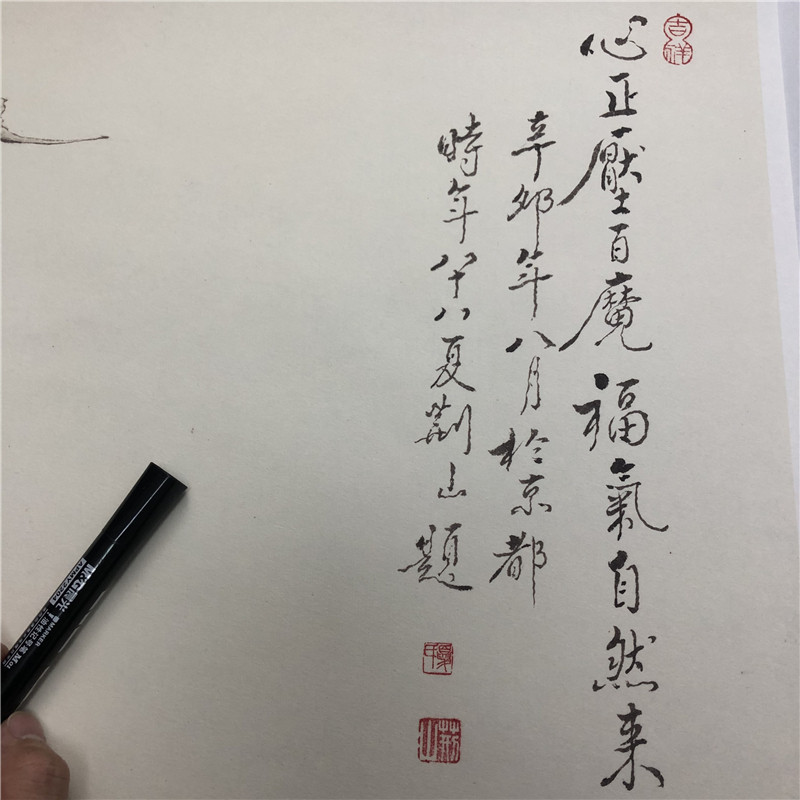 心正壓百魔福氣自然来
辛卯年八月於京都
時年八十八夏荊山題
吉祥
荊山
M&G晨光
MARKER